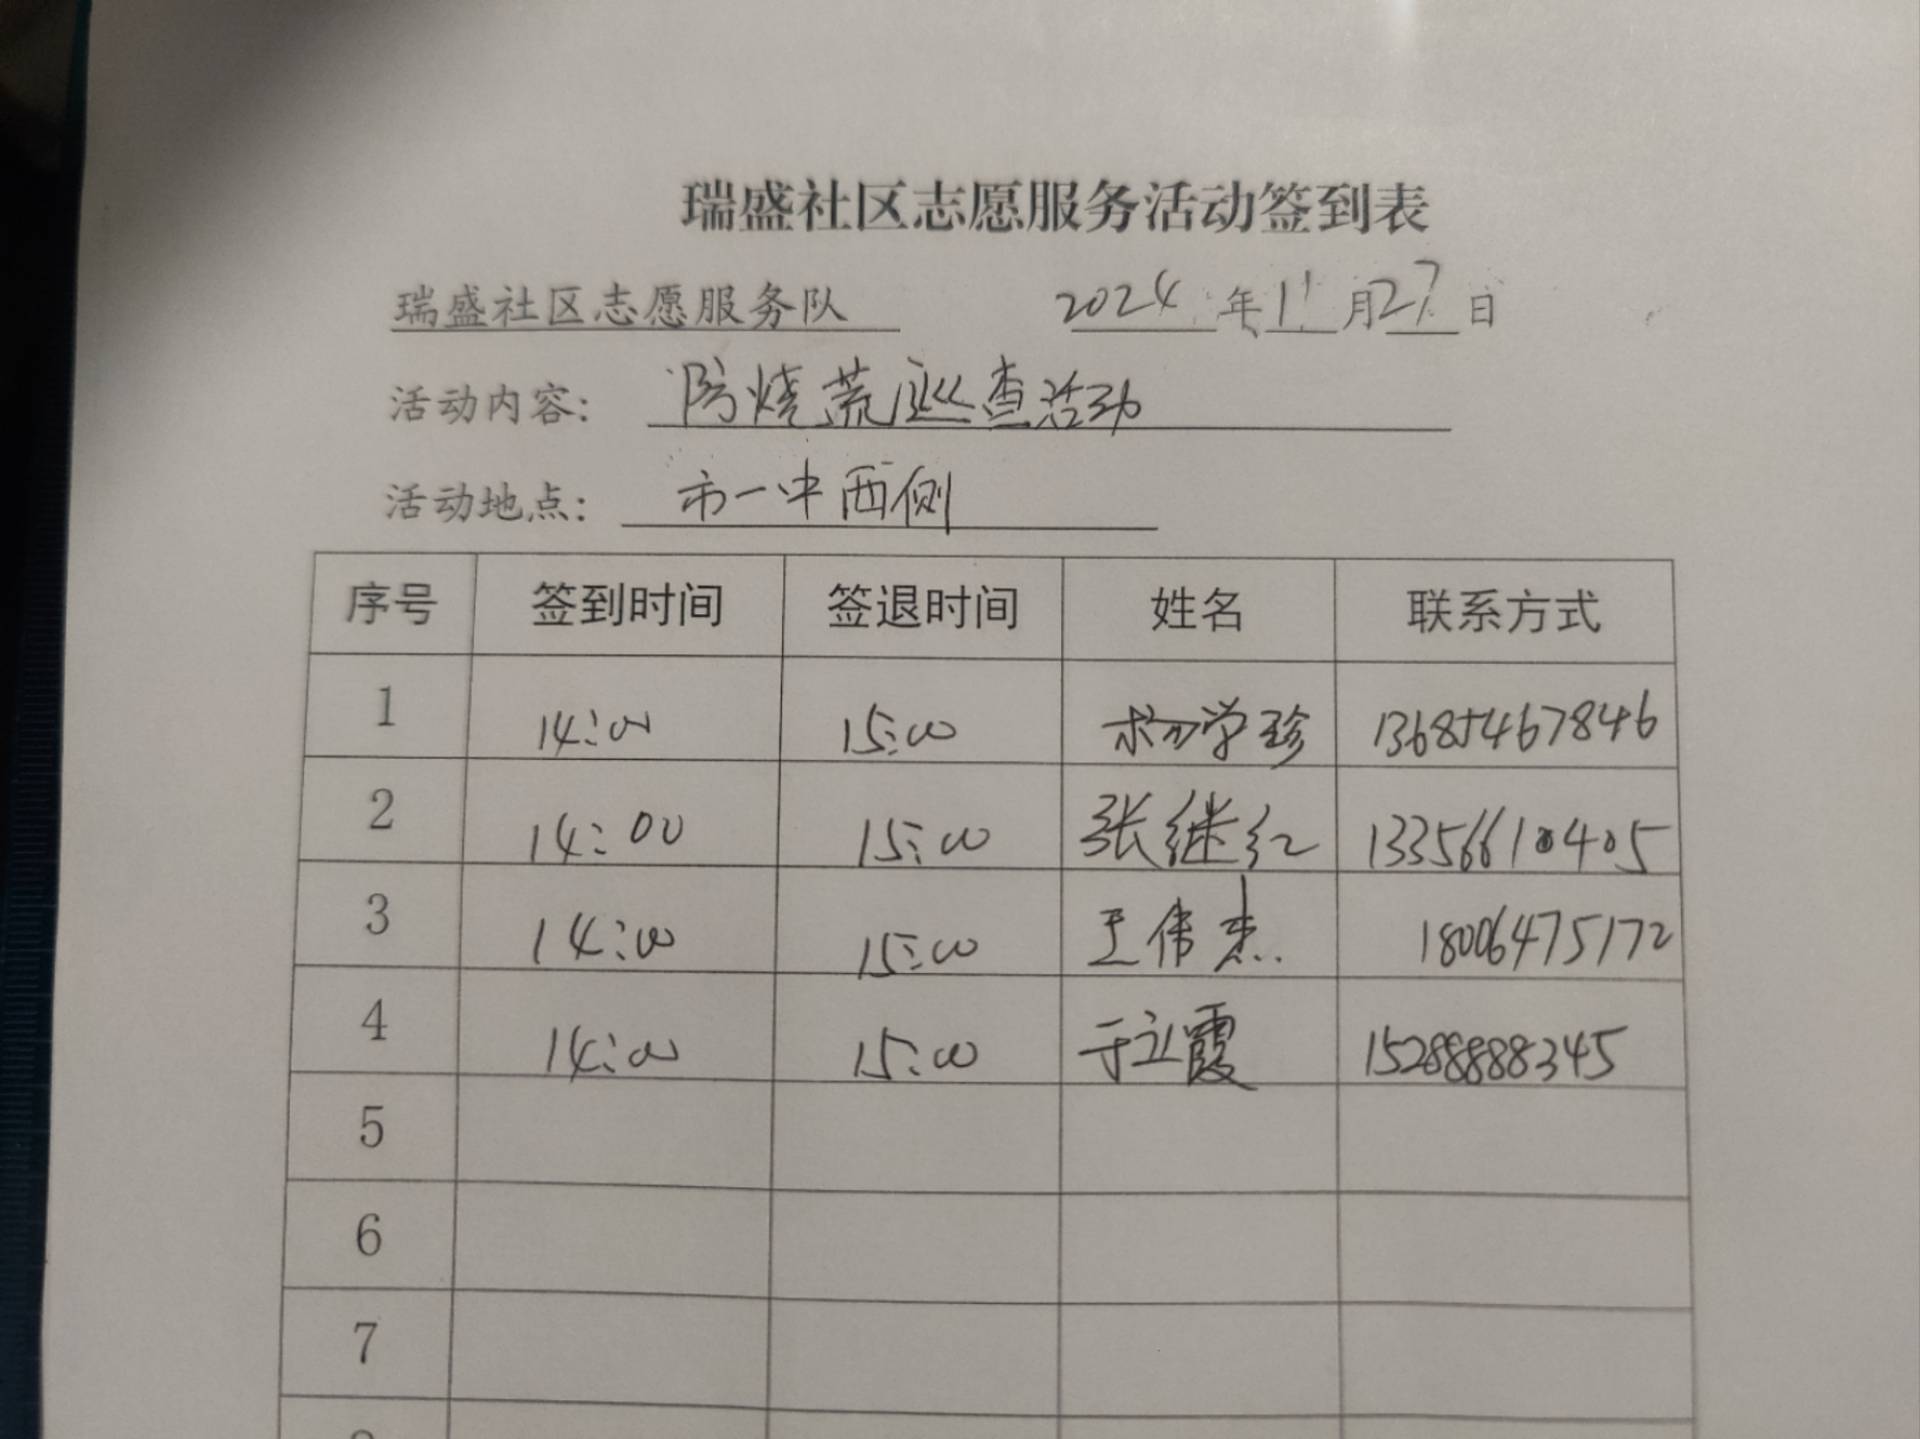 瑞盛社区志愿服务活动签到表
瑞盛社区志愿服务队 2024年11月27日
活动内容: 防烧荒巡查活动
活动地点: 市一中西侧
序号 签到时间 签退时间 姓名 联系方式
1 14:00 15:00 杨学珍 13685467846
2 14:00 15:00 张继红 13356610405
3 14:00 15:00 王伟杰 18006475172
4 14:00 15:00 于立霞 15288888345
5
6
7